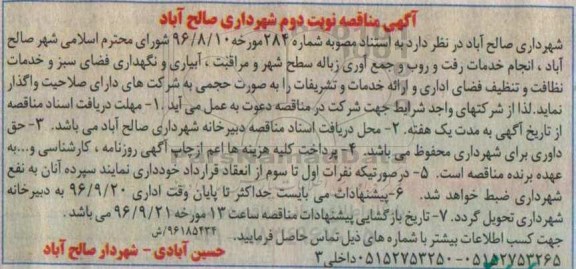 آگهی مناقصه نوبت دوم شهرداری صالح آباد
شهرداری صالح آباد در نظر دارد به استناد مصوبه شماره ۲۸۴ مورخه ۹۶/۸/۱۰ شورای محترم اسلامی شهر صالح
آباد ، انجام خدمات رفت و روب و جمع آوری زباله سطح شهر و مراقبت ، آبیاری و نگهداری فضای سبز و خدمات
نظافت و تنظیف فضای اداری و ارائه خدمات و تشریفات را به صورت حجمی به شرکت های دارای صلاحیت واگذار
نماید.لذا از شرکتهای واجد شرایط جهت شرکت در مناقصه دعوت به عمل می آید .۱- مهلت دریافت اسناد مناقصه
از تاریخ آگهی به مدت یک هفته. ۲- محل دریافت اسناد مناقصه دبیرخانه شهرداری صالح آباد می باشد. ۳-حق
داوری برای شهرداری محفوظ می باشد. ۴- پرداخت کلیه هزینه ها اعم ازچاپ آگهی روزنامه ، کارشناسی و...به
عهده برنده مناقصه است. ۵- درصورتیکه نفرات اول تا سوم از انعقاد قرارداد خودداری نمایند سپرده آنان به نفع
شهرداری ضبط خواهد شد. ۶-پیشنهادات می بایست حداکثر تا پایان وقت اداری ۹۶/۹/۲۰ به دبیرخانه
شهرداری تحویل گردد. ۷- تاریخ بازگشایی پیشنهادات مناقصه ساعت ۱۳ مورخه ۹۶/۹/۲۱ می باشد .
جهت کسب اطلاعات بیشتر با شماره های ذیل تماس حاصل فرمایید. ۹۶۱۸۵۴۳۴/ش
۰۵۱۵۲۷۵۳۲۶۵-۰۵۱۵۲۷۵۳۲۵۰داخلی ۳ حسین آبادی - شهردار صالح آباد
ParsNamadData